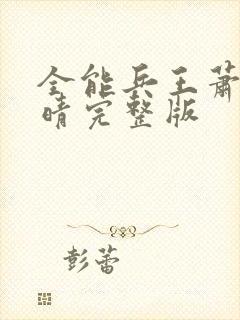 全能兵王萧
晴完整版
彭蕾